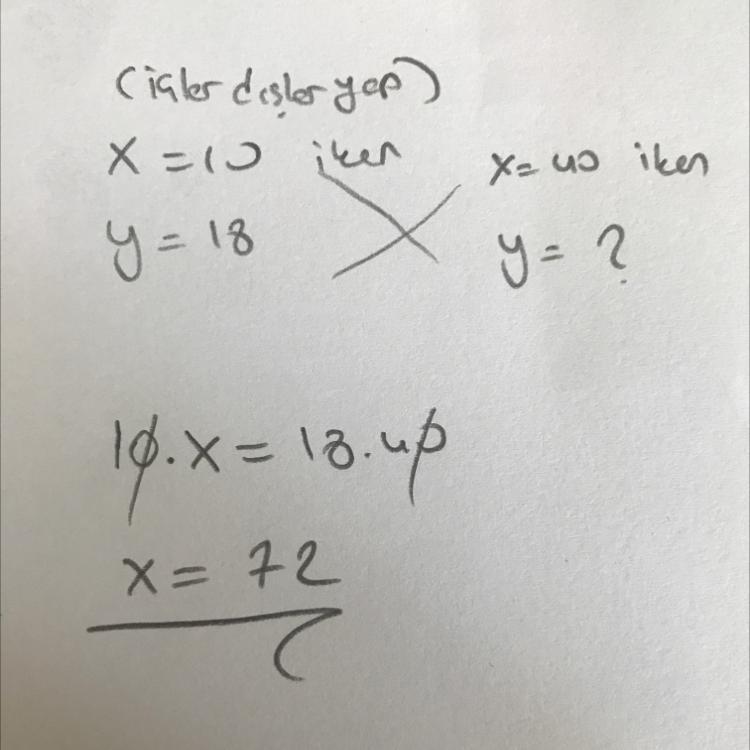 (içler dışlar yap)
x = 10 iken x = 40 iken
y = 18 y = ?
10.x = 18.40
x = 72